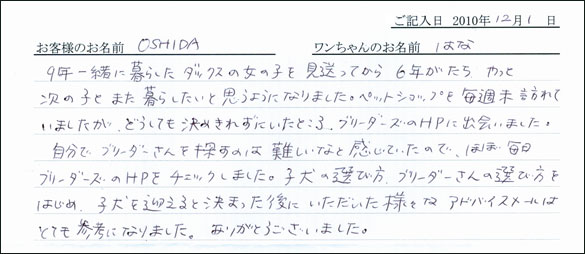 ご記入日 2010年12月1日
お客様のお名前 OSHIDA ワンちゃんのお名前 はな
9年一緒に暮らしたダックスの女の子を見送ってから6年がたち、やっと
次の子とまた暮らしたいと思うようになりました。ペットショップを毎週末訪れて
いましたが、どうしても決めきれずにいたところ、ブリーダーズのHPに出会いました。
自分でブリーダーさんを探すのは難しいなと感じていたので、ほぼ毎日
ブリーダーズのHPをチェックしました。子犬の選び方、ブリーダーさんの選び方を
はじめ、子犬を迎えると決まった後にいただいた様々なアドバイスメールは
とても参考になりました。ありがとうございました。